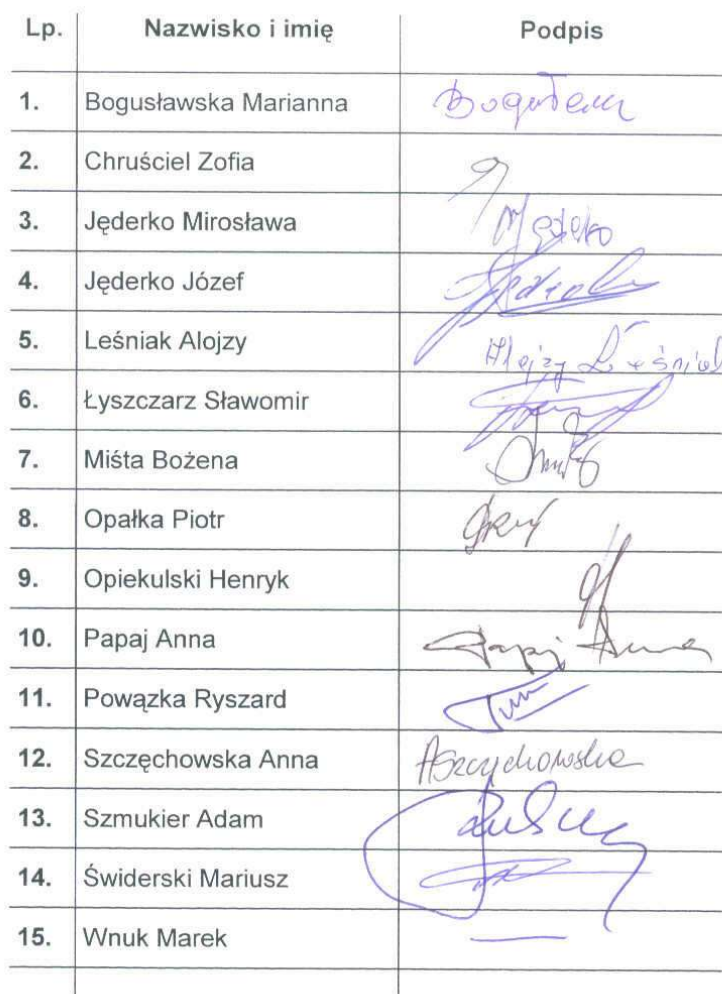 Lp. Nazwisko i imię Podpis
1. Bogusławska Marianna
2. Chruściel Zofia
3. Jęderko Mirosława
4. Jęderko Józef
5. Leśniak Alojzy Alojzy Leśniak
6. Łyszczarz Sławomir
7. Miśta Bożena
8. Opałka Piotr
9. Opiekulski Henryk
10. Papaj Anna Papaj Anna
11. Powązka Ryszard
12. Szczęchowska Anna ASzczęchowska
13. Szmukier Adam
14. Świderski Mariusz
15. Wnuk Marek —